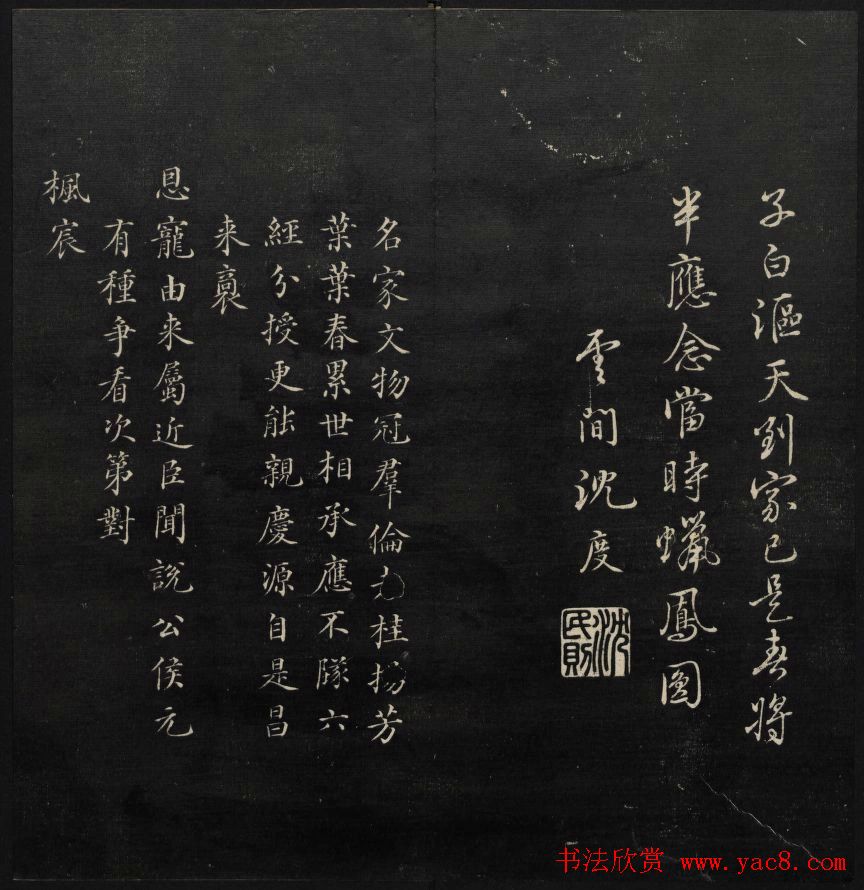 子白漚天到家已是春將
半應念當時蠟鳳圖
雲間沈度
沈氏民則
名家文物冠羣倫丸桂揚芳
葉葉春累世相承應不隊六
經分授更能親慶源自是昌
来裔
恩寵由来屬近臣聞說公侯元
有種争看次第對
楓宸
书法欣赏 www.yac8.com